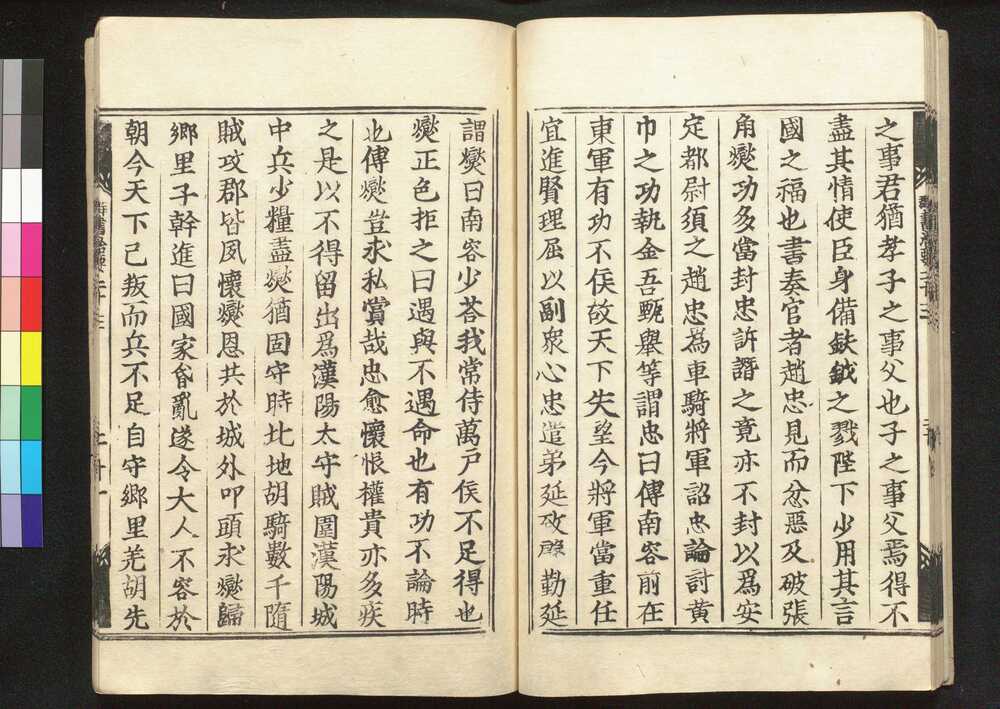 之事君猶孝子之事父也子之事父焉得不
盡其情使臣身備鈇鉞之戮陛下少用其言
國之福也書奏宦者趙忠見而忿惡及破張
角燮功多當封忠訴譖之竟亦不封以爲安
定都尉須之趙忠為車騎將軍詔忠論討黃
巾之功執金吾甄舉等謂忠曰傅南容前在
東軍有功不侯故天下失望今將軍當重任
宜進賢理屈以副衆心忠遣弟延致殷勤延
謂燮曰南容少荅我常侍萬戶侯不足得也
燮正色拒之曰遇與不遇命也有功不論時
也傅燮豈求私賞哉忠愈懷恨權貴亦多疾
之是以不得留出爲漢陽太守賊圍漢陽城
中兵少糧盡燮猶固守時北地胡騎數千隨
賊攻郡皆夙懷燮恩共於城外叩頭求燮歸
鄉里子幹進曰國家昏亂遂令大人不容於
朝今天下已叛而兵不足自守鄉里羌胡先